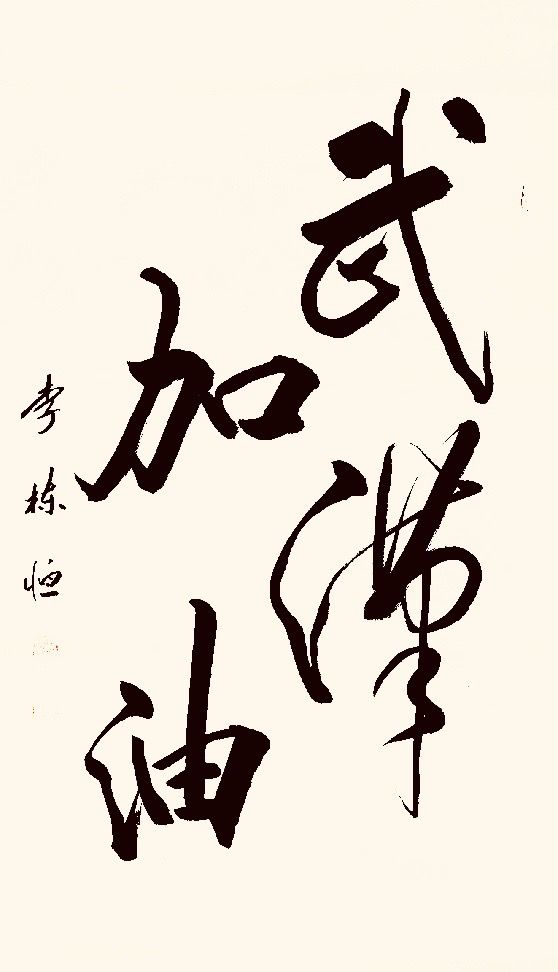 武漢
加油
李栋恒